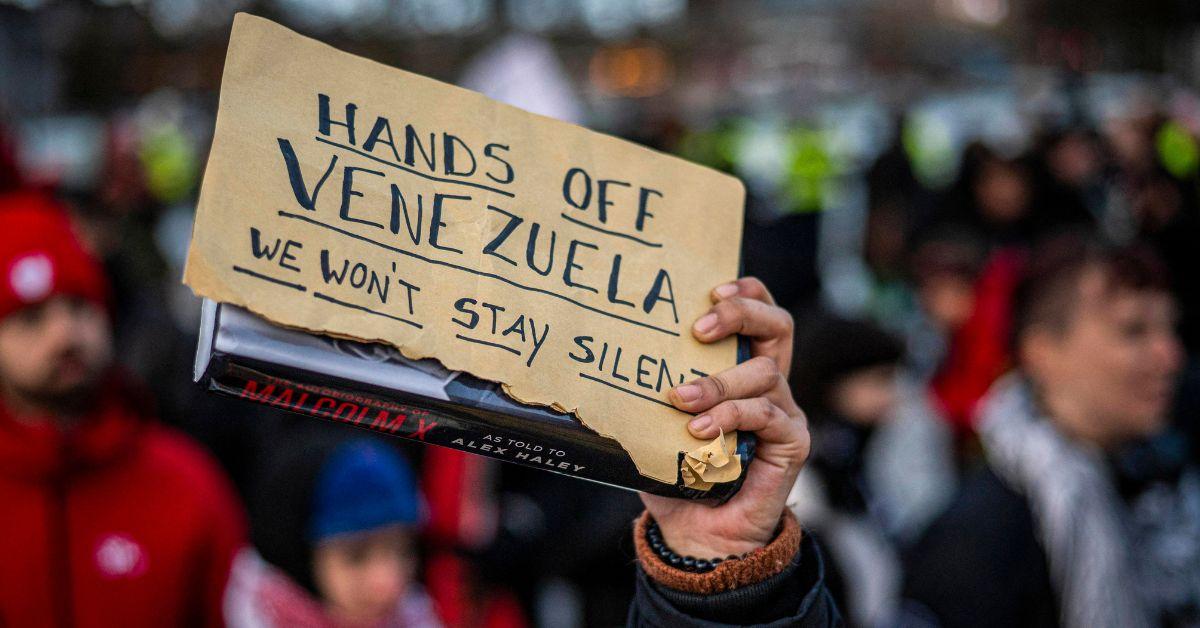 HANDS OFF
VENEZUELA
WE WON'T STAY SILENT
THE AUTOBIOGRAPHY OF
MALCOLM X
AS TOLD TO
ALEX HALEY